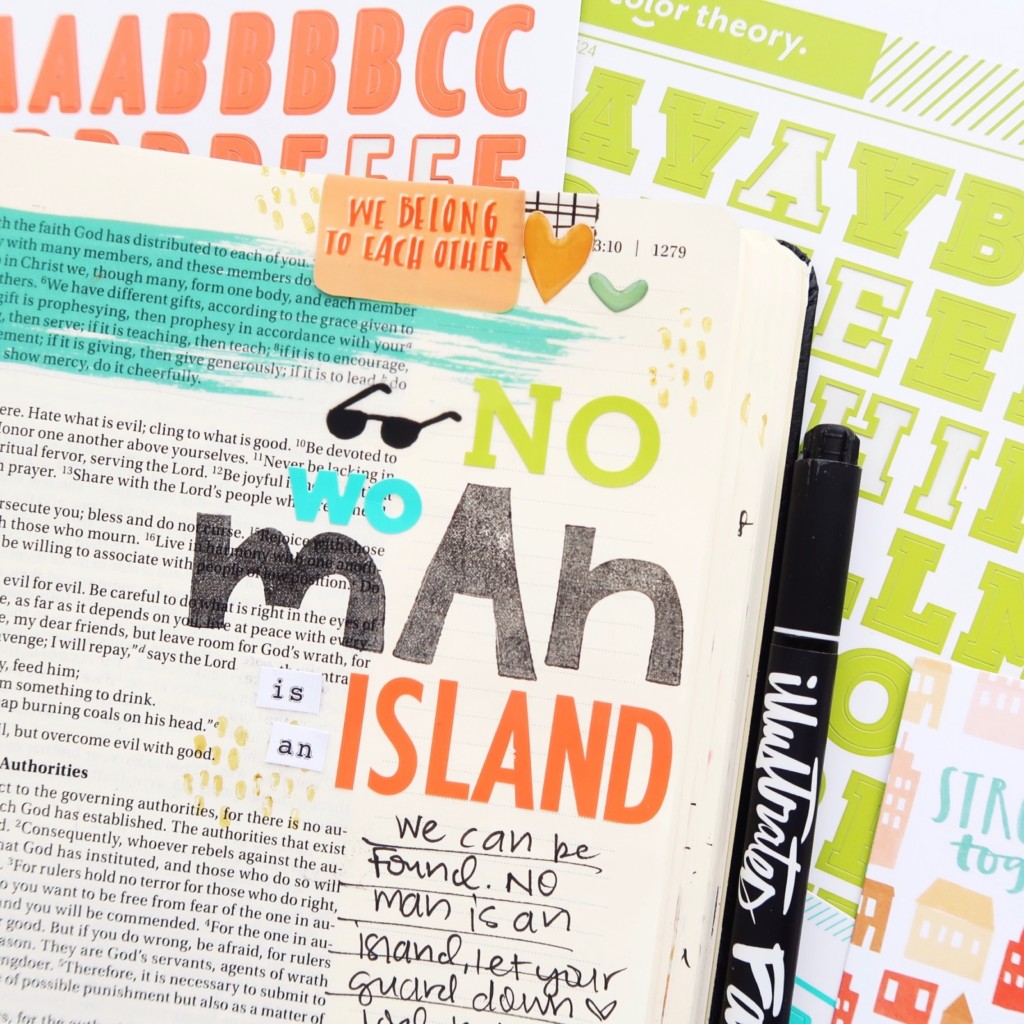 AAABBBBCC
color theory.
WE BELONG
TO EACH OTHER
3:10 | 1279
h the faith God has distributed to each of you.
with many members, and these members do
in Christ we, though many, form one body, and each member
thers. ⁶We have different gifts, according to the grace given to
gift is prophesying, then prophesy in accordance with your
, then serve; if it is teaching, then teach; ⁸if it is to encourage,
ment; if it is giving, then give generously; if it is to lead, do
show mercy, do it cheerfully.
ere. Hate what is evil; cling to what is good. ¹⁰Be devoted to
Honor one another above yourselves. ¹¹Never be lacking in
ritual fervor, serving the Lord. ¹²Be joyful
n prayer. ¹³Share with the Lord's people
rsecute you; bless and do not curse. ¹⁵Rejoice with those
h those who mourn. ¹⁶Live in harmony with one anoth-
be willing to associate with people of low position. Do
evil for evil. Be careful to do what is right in the eyes of
e, as far as it depends on you, live at peace with every
, my dear friends, but leave room for God's wrath, for
venge; I will repay,"ᵈ says the Lord
y, feed him;
m something to drink.
ap burning coals on his head."ᵉ
l, but overcome evil with good.
Authorities
ct to the governing authorities, for there is no au-
ch God has established. The authorities that exist
d. ²Consequently, whoever rebels against the au-
hat God has instituted, and those who do so will
. ³For rulers hold no terror for those who do right,
o you want to be free from fear of the one in au-
and you will be commended. ⁴For the one in au-
r good. But if you do wrong, be afraid, for rulers
ason. They are God's servants, agents of wrath
ngdoer. ⁵Therefore, it is necessary to submit to
e of possible punishment but also as a matter of
NO
wo
mAn
is
an
ISLAND
we can be
found. NO
man is an
island, let your
guard down ♡
illustrated Fa
STRO
tog